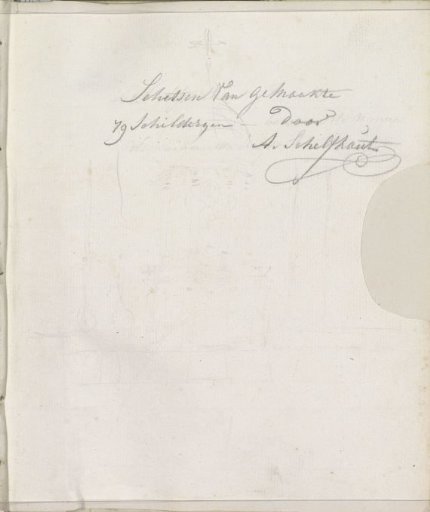 Schetsen Van gemaakte
79 Schilderyen - Door
A. Schelfhout